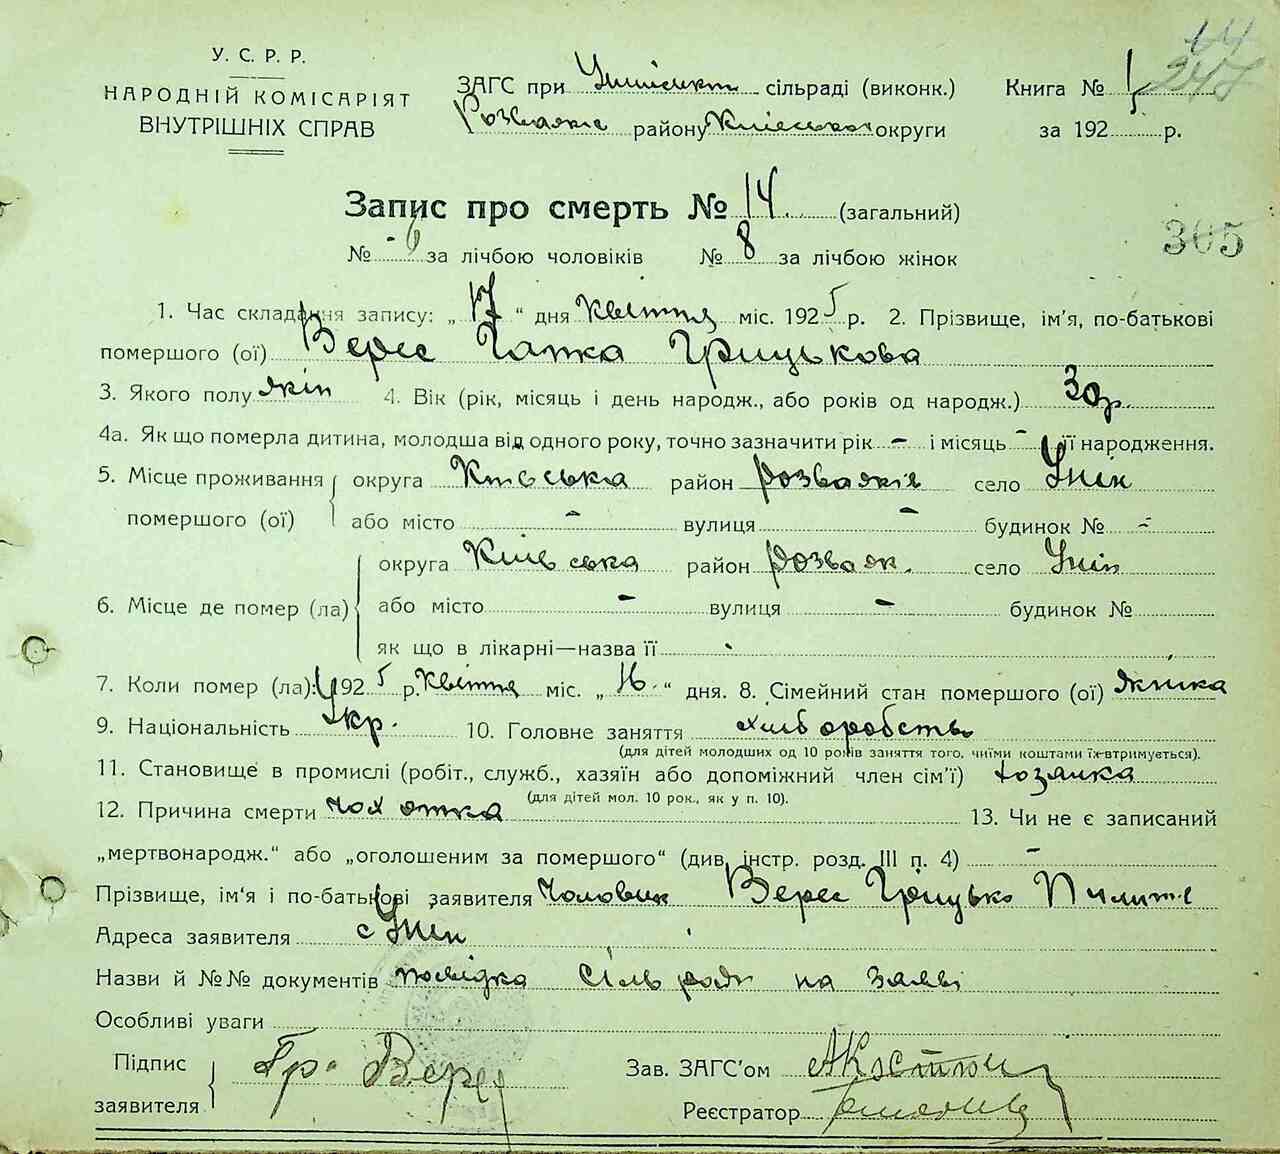 14
247
У. С. Р. Р.
НАРОДНІЙ КОМІСАРІЯТ
ВНУТРІШНІХ СПРАВ
ЗАГС при сільраді (виконк.)
району Київської округи
Книга № 1
за 192 р.
Запис про смерть № 14 (загальний)
№ 6 за лічбою чоловіків № 8 за лічбою жінок
305
1. Час складання запису: „ 17 “ дня квіття міс. 1925 р. 2. Прізвище, ім'я, по-батькові
помершого (ої) Верес Гапка Грицькова
3. Якого полу жін 4. Вік (рік, місяць і день народж., або років од народж.) 30 р.
4а. Як що померла дитина, молодша від одного року, точно зазначити рік - і місяць - її народження.
5. Місце проживання округа Київська район розважів село Унін
помершого (ої) або місто - вулиця - будинок № -
округа Київська район розваж. село Унін
6. Місце де помер (ла) або місто - вулиця - будинок №
як що в лікарні—назва її
7. Коли помер (ла): 1925 р. квіття міс. „ 16 “ дня. 8. Сімейний стан помершого (ої) жінка
9. Національність Укр. 10. Головне заняття хліборобство
(для дітей молодших од 10 років заняття того, чиїми коштами їх втримується).
11. Становище в промислі (робіт., служб., хазяїн або допоміжний член сім'ї) хозяйка
(для дітей мол. 10 рок., як у п. 10).
12. Причина смерти чохотка 13. Чи не є записаний
„мертвонародж.“ або „оголошеним за помершого“ (див. інстр. розд. III п. 4) -
Прізвище, ім'я і по-батькові заявителя чоловик Верес Грицько
Адреса заявителя с Унін
Назви й №№ документів посвідка сільради на заяві
Особливі уваги
Підпис
заявителя Гр. Верес
Зав. ЗАГС'ом
Реєстратор